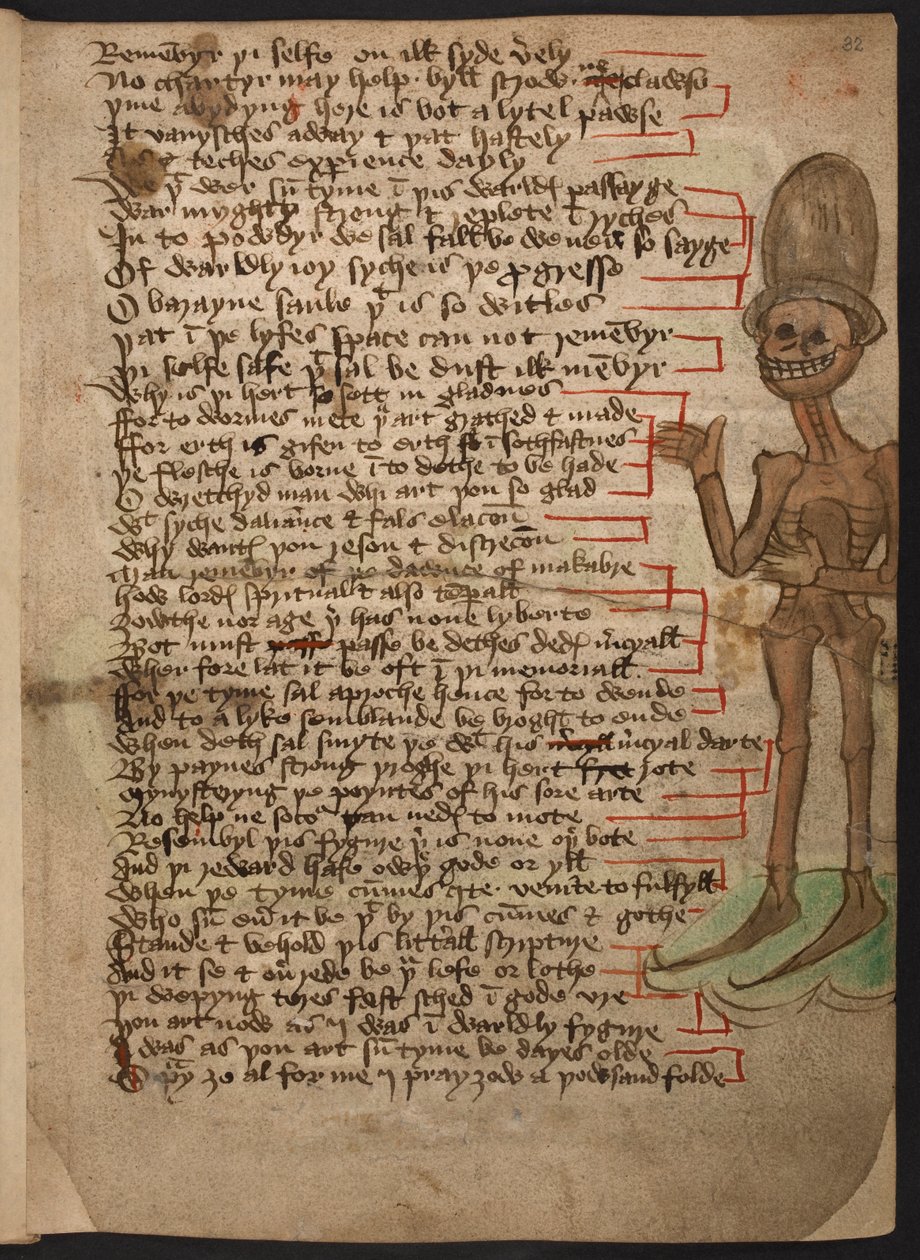 32
Remēbyr þi selfe on ilk syde v̄ely
No chartyr may help · byll ne clawse
Tyme abydyng here is bot a lytel pawse
It vanysches away & þat hastely
os teches expience dayly
We þt wer sū tyme ī þis warldꝭ passayge
War myghty streng & replete ī ryches
In to powdyr we sal fall be we neu so sayge
Of warldly ioy syche is þe pgresse
O brayne saule þt is so witles
Þat ī þe lyfes space can not remēbyr
Þi selfe safe þt sal be dust ilk mēbyr
Why is þi hert so sett in gladnes
ffor to wormes mete þu art grathed & made
ffor erth is gifen to erth ī sothfastnes
Þe flesche is borne ī to dethe to be hade
O wretthyd man whi art þou so glad
Wt syche daliaūnce & fals elacōn
Why wantꝭ þou reson & discrecōn
Man remēbyr of þe dawnce of makabre
how lordꝭ spiritualt also tēpall
Ȝowthe nor age þr has none lyberte
Bot must passe be dethes dedꝭ m̄cyall
Wher fore lat it be oft ī þi memoriall
ffor þe tyme sal aproche hence for to wende
And to a lyke semblande be broght to ende
When deth sal smyte þe wt his m̄cyal darte
By paynes strong þroghe þi hert rote
Mynystryng þe poyntes of his sore arte
No help ne can nedꝭ to mote
Resembyl þis fygure þr is none oþr bote
And þi reward hafe owþr gode or yll
When þe tyme cūmes ute venite to fulfyll
Who sū eū it be þt by þis cūmes & gothe
Stande & behold þis litt̄all scripture
And it se & ou rede be þu lefe or lothe
Þi wepyng teres fast sched ī gode vre
Þou art now as I was ī warldly fygure
I was as þou art sū tyme be dayes olde
pray ȝe al for me I pray ȝow a þowsand folde